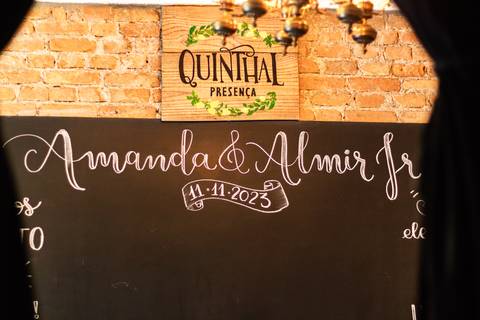 QUINTHAL
PRESENÇA
Amanda & Almir Jr
11·11·2023